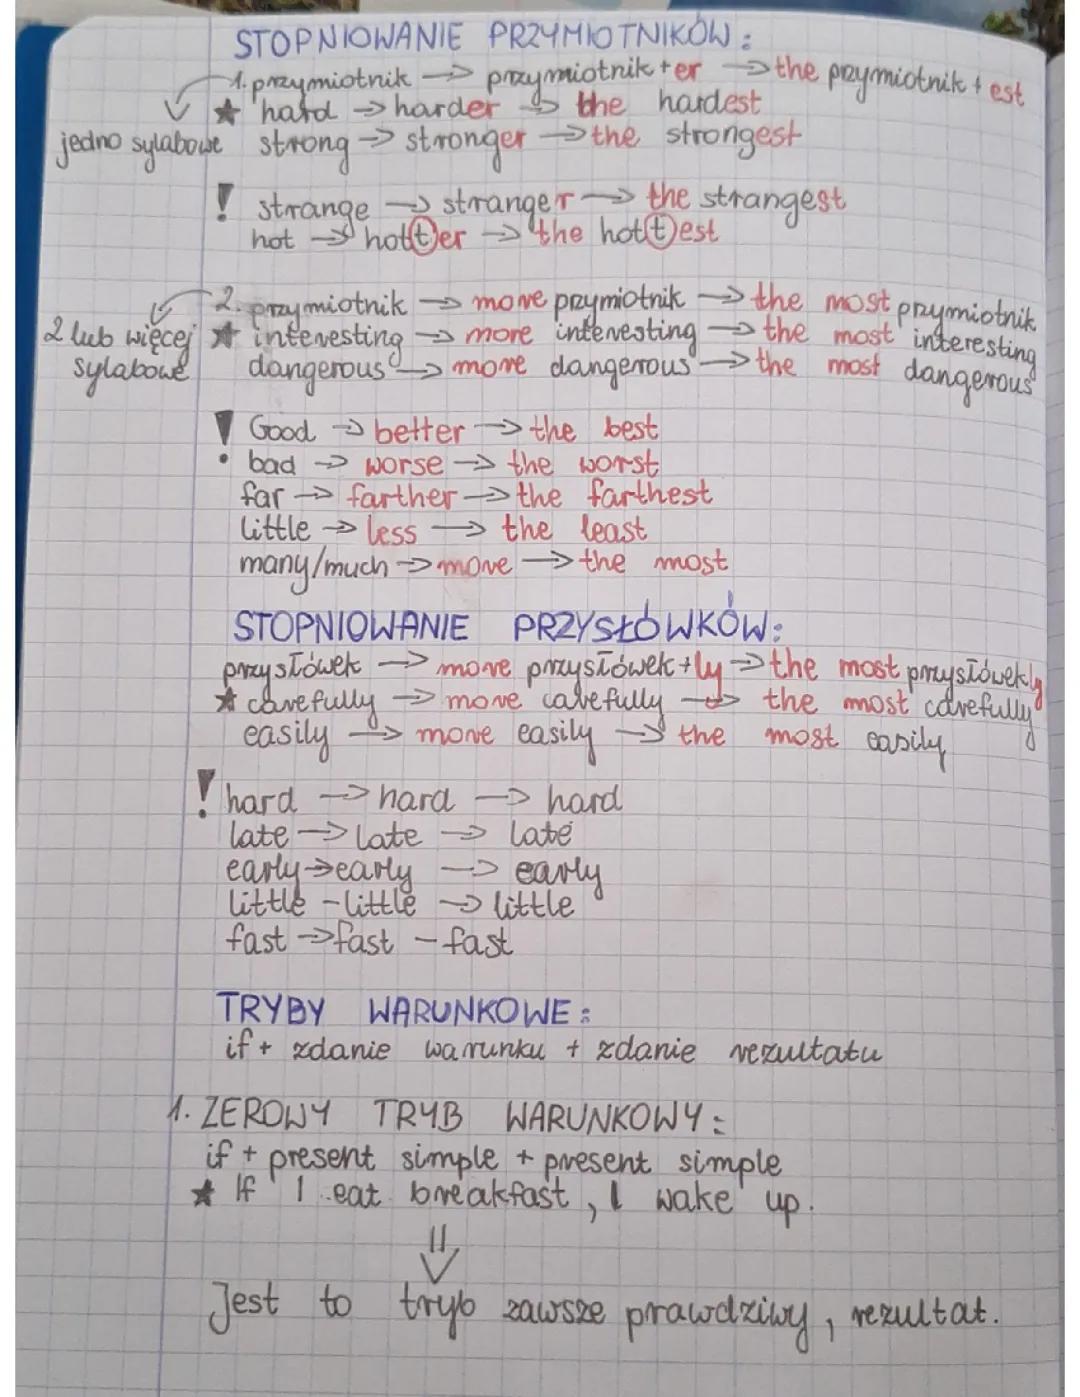 STOPNIOWANIE PRZYMIOTNIKÓW:
1. przymiotnik → przymiotnik + er → the przymiotnik + est
★ hard → harder → the hardest
jedno sylabowe strong → stronger → the strongest
! strange → stranger → the strangest
hot → hotter → the hottest
2. przymiotnik → more przymiotnik → the most przymiotnik
2 lub więcej ★ interesting → more interesting → the most interesting
sylabowe dangerous → more dangerous → the most dangerous
! Good → better → the best
bad → worse → the worst
far → farther → the farthest
little → less → the least
many/much → more → the most
STOPNIOWANIE PRZYSŁÓWKÓW:
przysłówek → more przysłówek + ly → the most przysłówekly
★ carefully → more carefully → the most carefully
easily → more easily → the most easily
! hard → hard → hard
late → late → late
early → early → early
little - little → little
fast → fast - fast
TRYBY WARUNKOWE:
if + zdanie warunku + zdanie rezultatu
1. ZEROWY TRYB WARUNKOWY:
if + present simple + present simple
★ If I eat breakfast, I wake up.
Jest to tryb zawsze prawdziwy, rezultat.